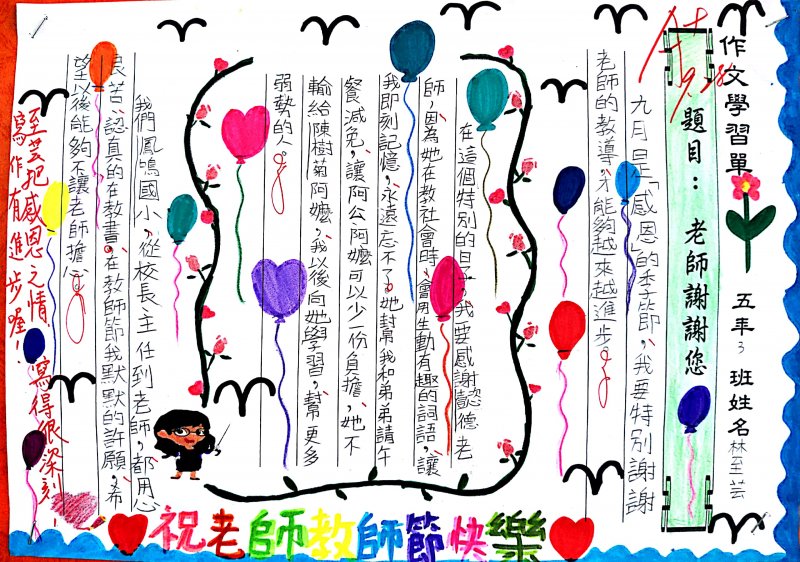 作文學習單
五年3班姓名林至芸
題目：老師謝謝您
九月是「感恩」的季節，我要特別謝謝
老師的教導，才能夠越來越進步。
在這個特別的日子，我要感謝懿德老
師，因為她在教社會時，會用生動有趣的詞語，讓
我即刻記憶，永遠忘不了。她幫我和弟弟請午
餐減免，讓阿公阿嬤可以少一份負擔，她不
輸給陳樹菊阿嬤，我以後向她學習，幫更多
弱勢的人。
我們鳳鳴國小，從校長主任到老師，都用心
良苦、認真的在教書。在教師節我默默的許願，希
望以後能夠不讓老師擔心。
至芸把感恩之情，寫得很深刻！
寫作有進步喔！
祝老師教師節快樂